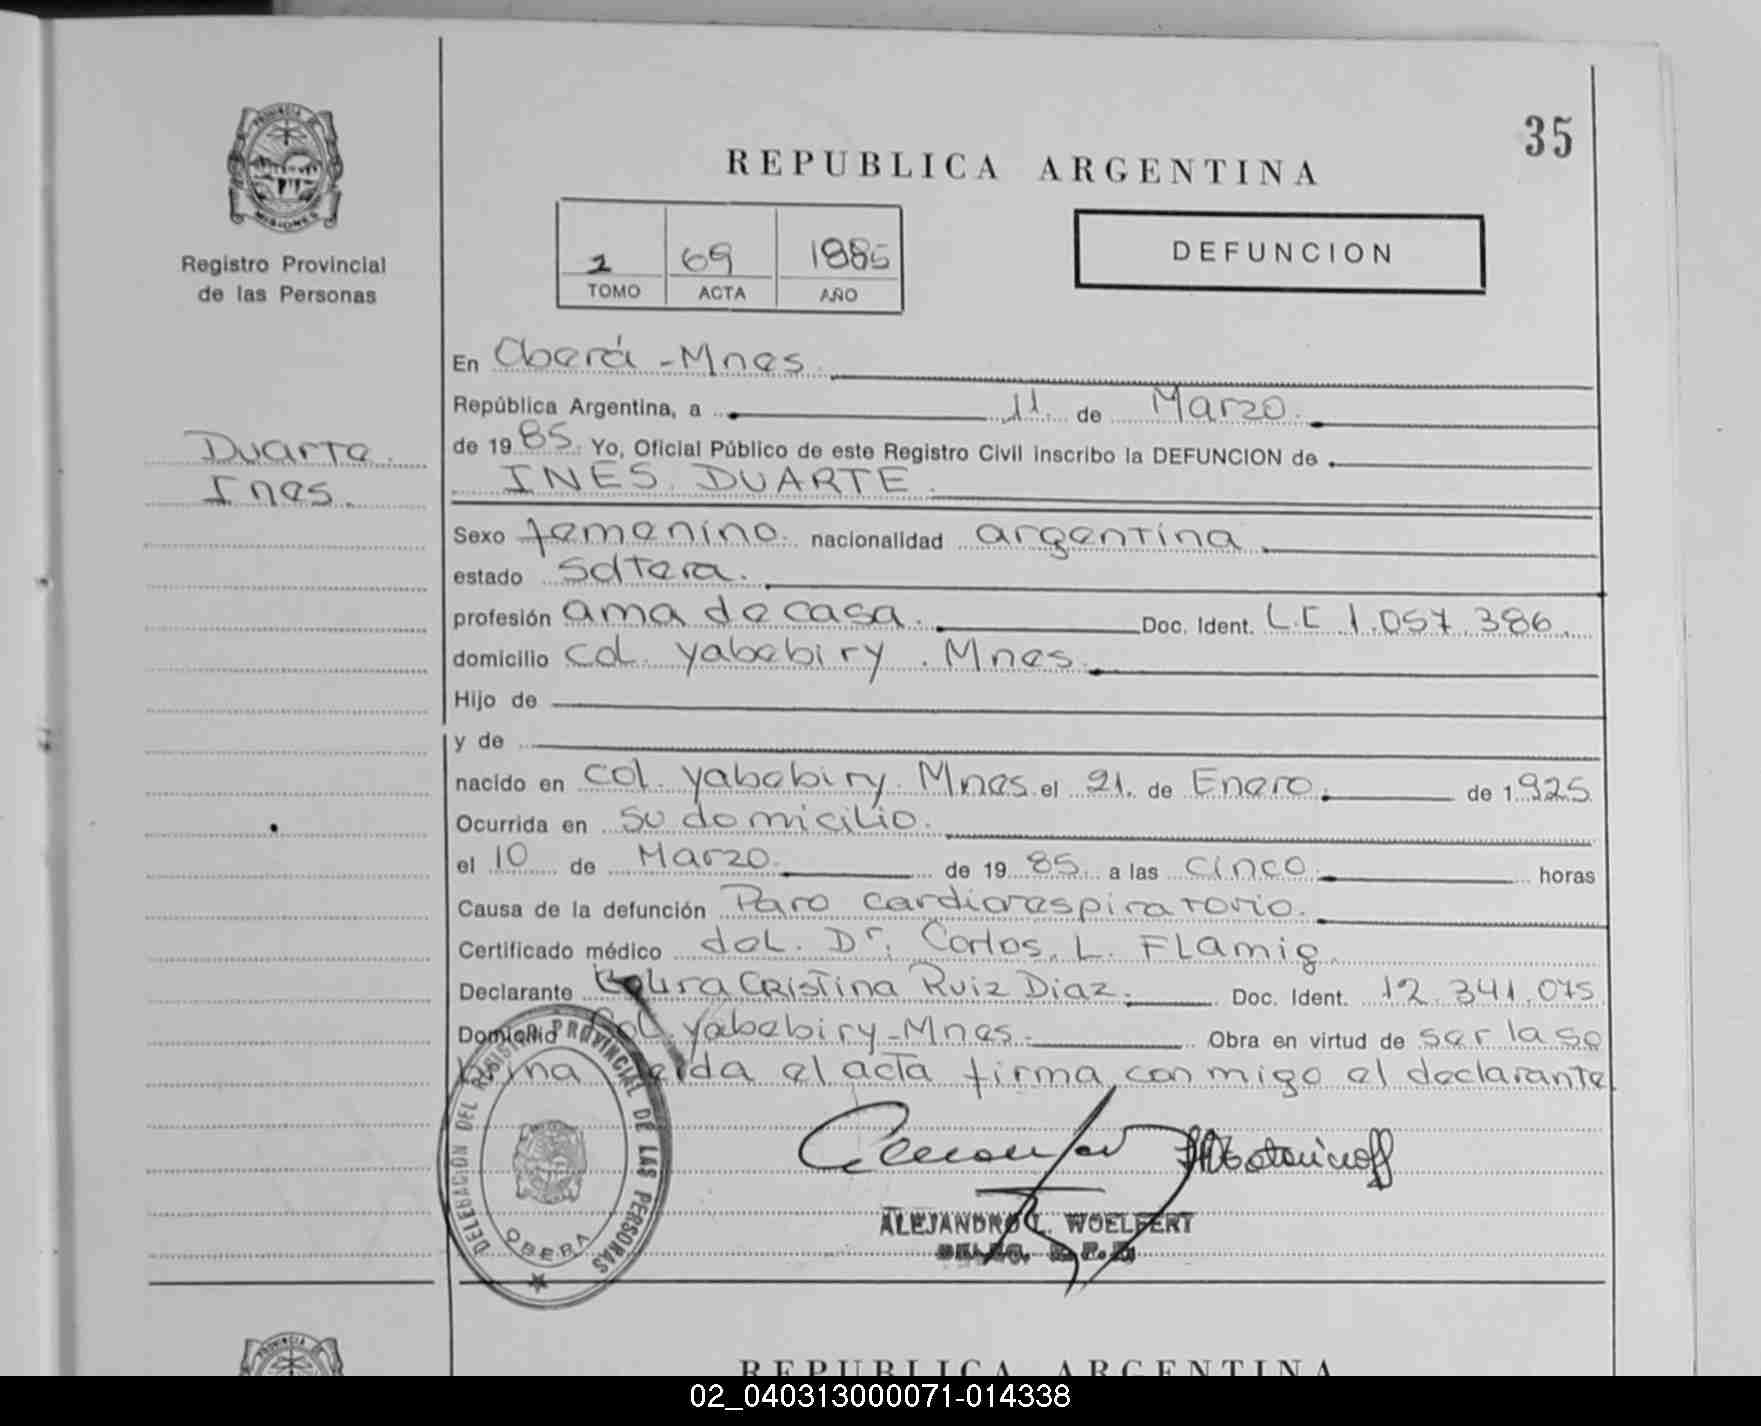 35
REPUBLICA ARGENTINA
PROVINCIA DE
MISIONES
Registro Provincial
de las Personas
1 69 1985
TOMO ACTA AÑO
DEFUNCION
Duarte
Ines.
En Oberá - Mnes.
República Argentina, a 11. de Marzo.
de 1985. Yo, Oficial Público de este Registro Civil inscribo la DEFUNCION de
INES DUARTE.
Sexo femenino. nacionalidad argentina
estado soltera.
profesión ama de casa. Doc. Ident. L.C 1.057.386.
domicilio col. yabebiry. Mnes.
Hijo de
y de
nacido en col. yabebiry. Mnes. el 21. de Enero. de 1925.
Ocurrida en su domicilio.
el 10 de Marzo. de 1985. a las cinco. horas
Causa de la defunción Paro cardiorespiratorio.
Certificado médico del. Dr. Carlos. L. Flamig
Declarante Laura Cristina Ruiz Diaz. Doc. Ident. 12.341.075
Domicilio Col. yabebiry - Mnes. Obra en virtud de ser la so
brina leida el acta firma conmigo el declarante.
DELEGACION DEL REGISTRO PROVINCIAL DE LAS PERSONAS
OBERA
ALEJANDRO L. WOELFERT
DELEG. R. P. P.
REPUBLICA ARGENTINA
02_040313000071-014338